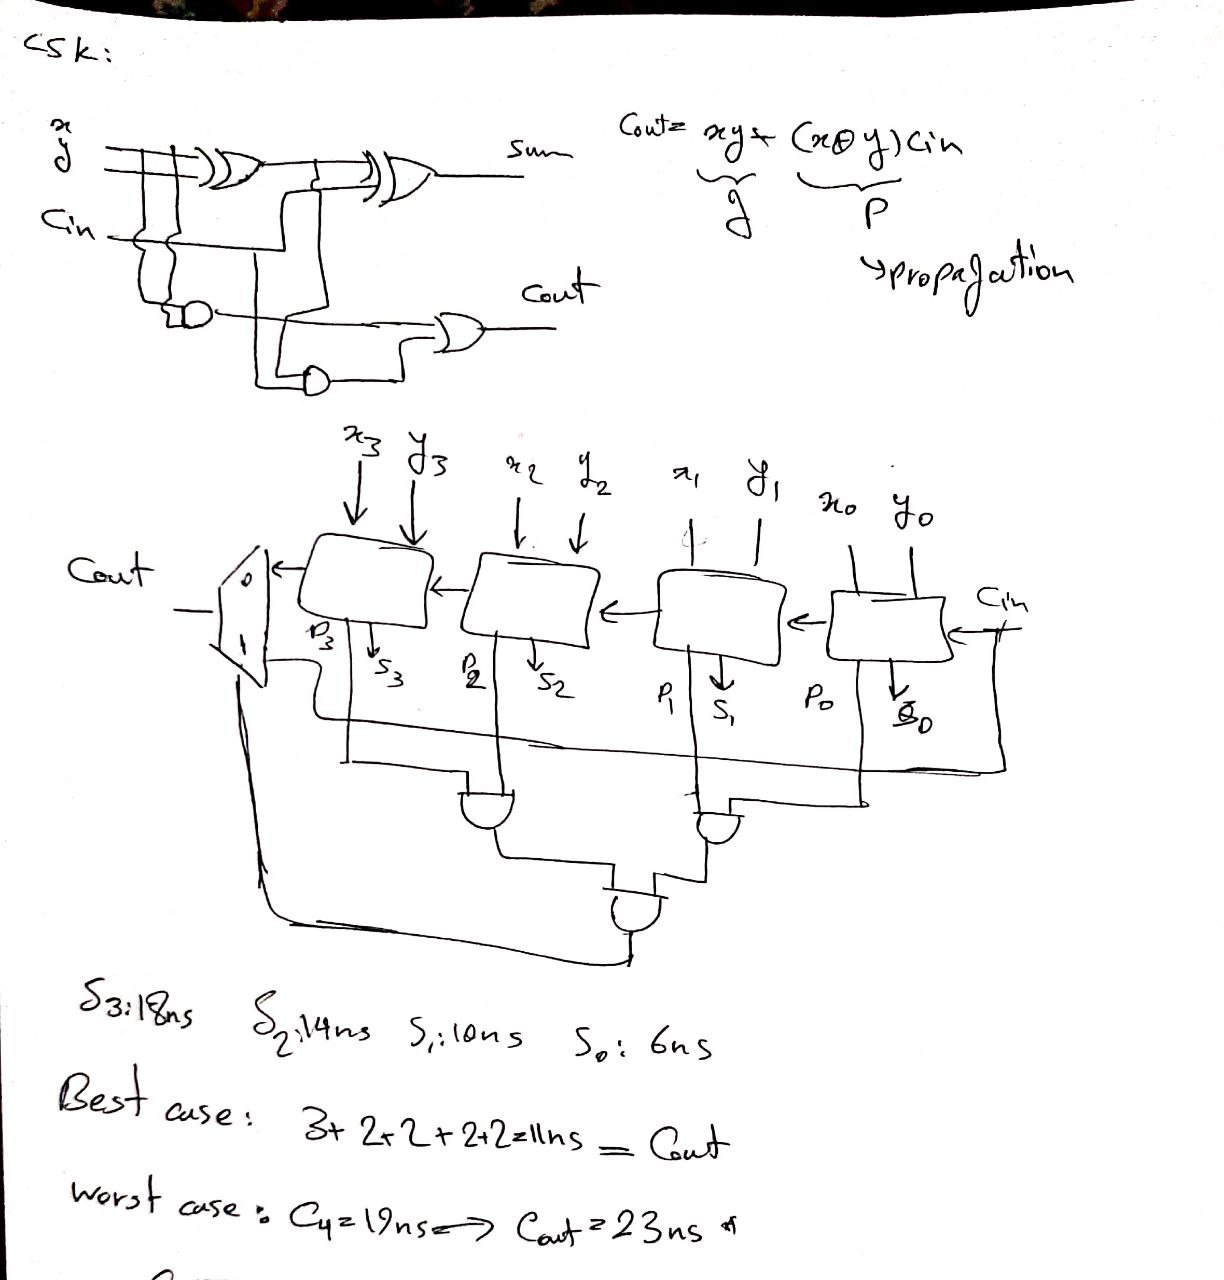 CSK:
x
y
Cin
Sum
Cout
Cout = xy + (x⊕y)Cin
g
P
↳propagation
x3 y3 x2 y2 x1 y1 x0 y0
Cout
0
1
Cin
P3 S3 P2 S2 P1 S1 P0 S0
S3:18ns S2:14ns S1:10ns S0: 6ns
Best case: 3+2+2+2+2=11ns = Cout
worst case: C4=19ns → Cout=23ns *